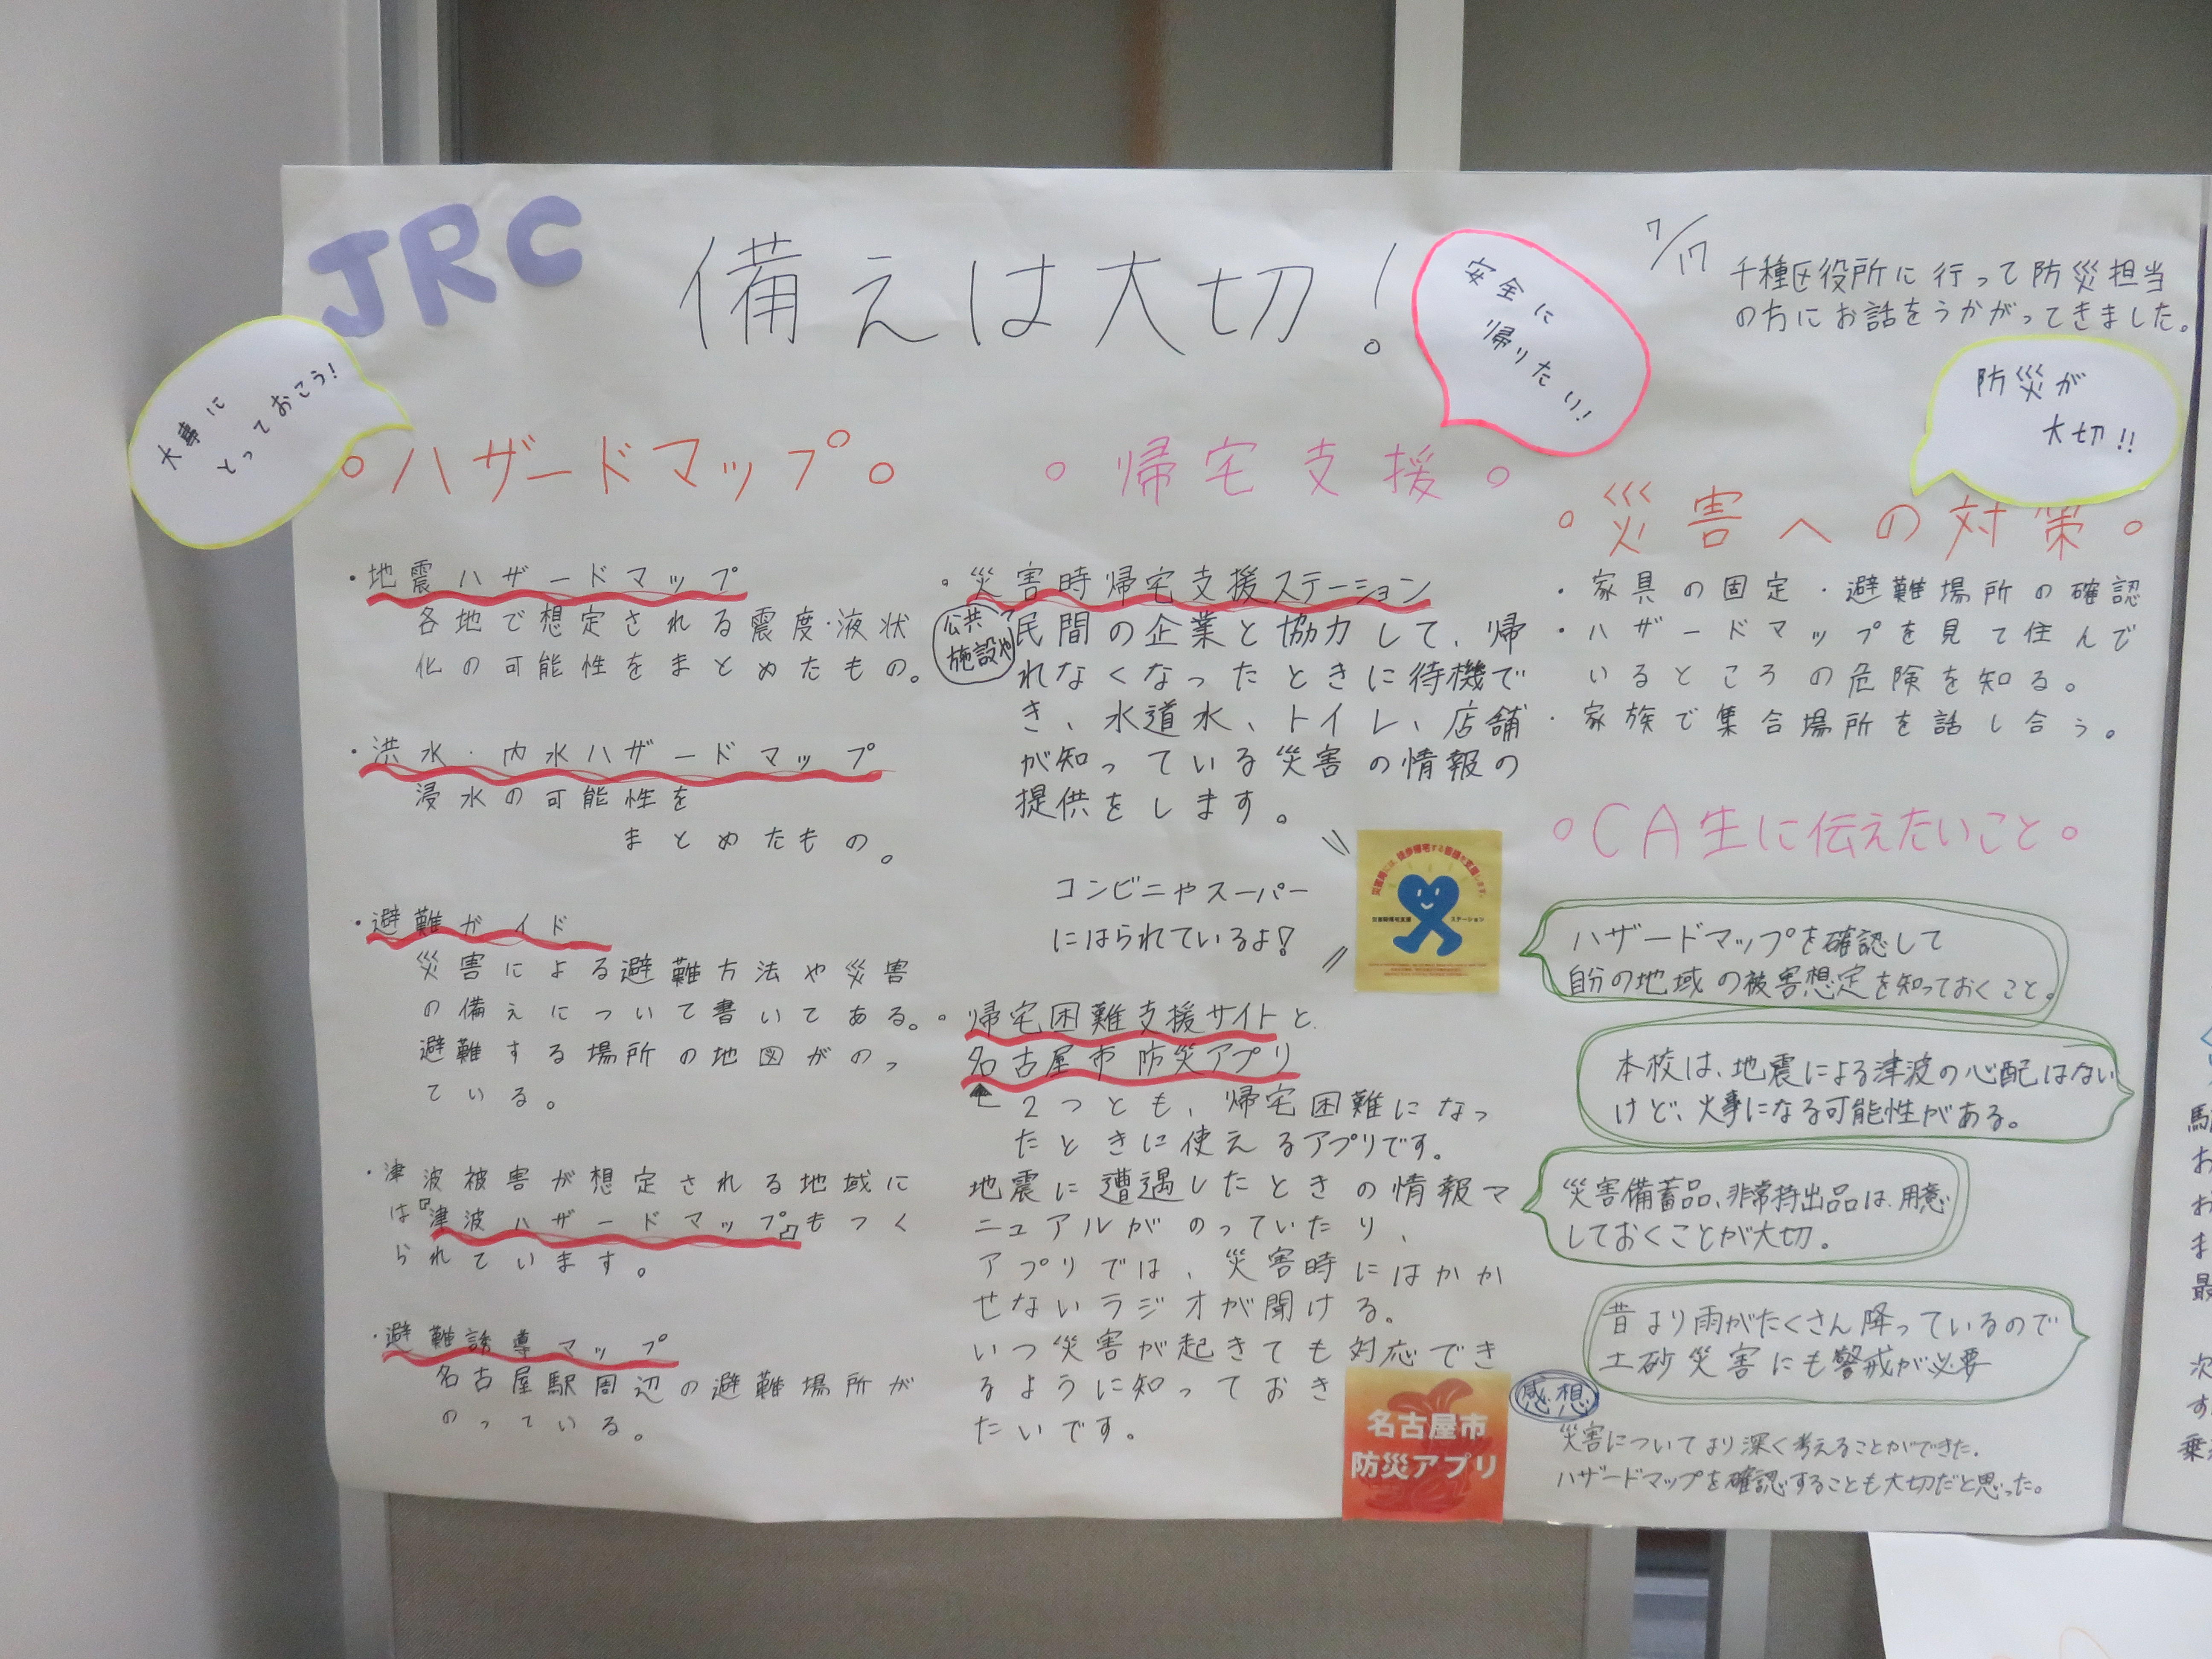 JRC
備えは大切!
安全に
帰りたい!
7/17
千種区役所に行って防災担当
の方にお話をうかがってきました。
大事に
とっておこう!
防災が
大切!!
ハザードマップ
・地震ハザードマップ
各地で想定される震度・液状
化の可能性をまとめたもの。
・洪水・内水ハザードマップ
浸水の可能性を
まとめたもの。
・避難ガイド
災害による避難方法や災害
の備えについて書いてある。
避難する場所の地図がのっ
ている。
・津波被害が想定される地域に
は『津波ハザードマップ』もつく
られています。
・避難誘導マップ
名古屋駅周辺の避難場所が
のっている。
帰宅支援
・災害時帰宅支援ステーション
公共
施設や
民間の企業と協力して、帰
れなくなったときに待機で
き、水道水、トイレ、店舗
が知っている災害の情報の
提供をします。
コンビニやスーパー
にはられているよ!
災害時には、徒歩帰宅する皆様を支援します。
災害時帰宅支援 ステーション
・帰宅困難支援サイトと
名古屋市防災アプリ
2つとも、帰宅困難になっ
たときに使えるアプリです。
地震に遭遇したときの情報マ
ニュアルがのっていたり、
アプリでは、災害時にはかか
せないラジオが聞ける。
いつ災害が起きても対応でき
るように知っておき
たいです。
名古屋市
防災アプリ
災害への対策
・家具の固定・避難場所の確認
・ハザードマップを見て住んで
いるところの危険を知る。
・家族で集合場所を話し合う。
CA生に伝えたいこと
ハザードマップを確認して
自分の地域の被害想定を知っておくこと。
本校は、地震による津波の心配はない
けど、火事になる可能性がある。
災害備蓄品、非常持出品は、用意
しておくことが大切。
昔より雨がたくさん降っているので
土砂災害にも警戒が必要
感想
災害についてより深く考えることができた.
ハザードマップを確認することも大切だと思った。
駅
お
お
ま
最
次
す